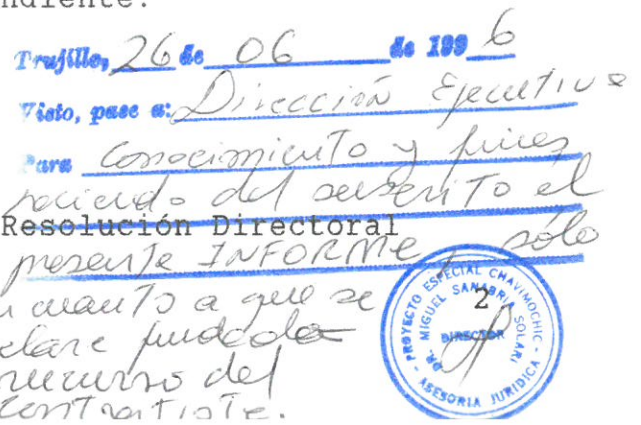 ndiente.
Trujillo, 26 de 06 de 1996
Visto, pase a: Dirección Ejecutiva
Para Conocimiento y fines
haciendo del suscrito el
Resolución Directoral
presente INFORME, sólo
cuanto a que se
clare fundado
recurso del
contratista.
PROYECTO ESPECIAL CHAVIMOCHIC
DR. MIGUEL SANABRIA SOLARI
2
DIRECTOR
ASESORIA JURIDICA